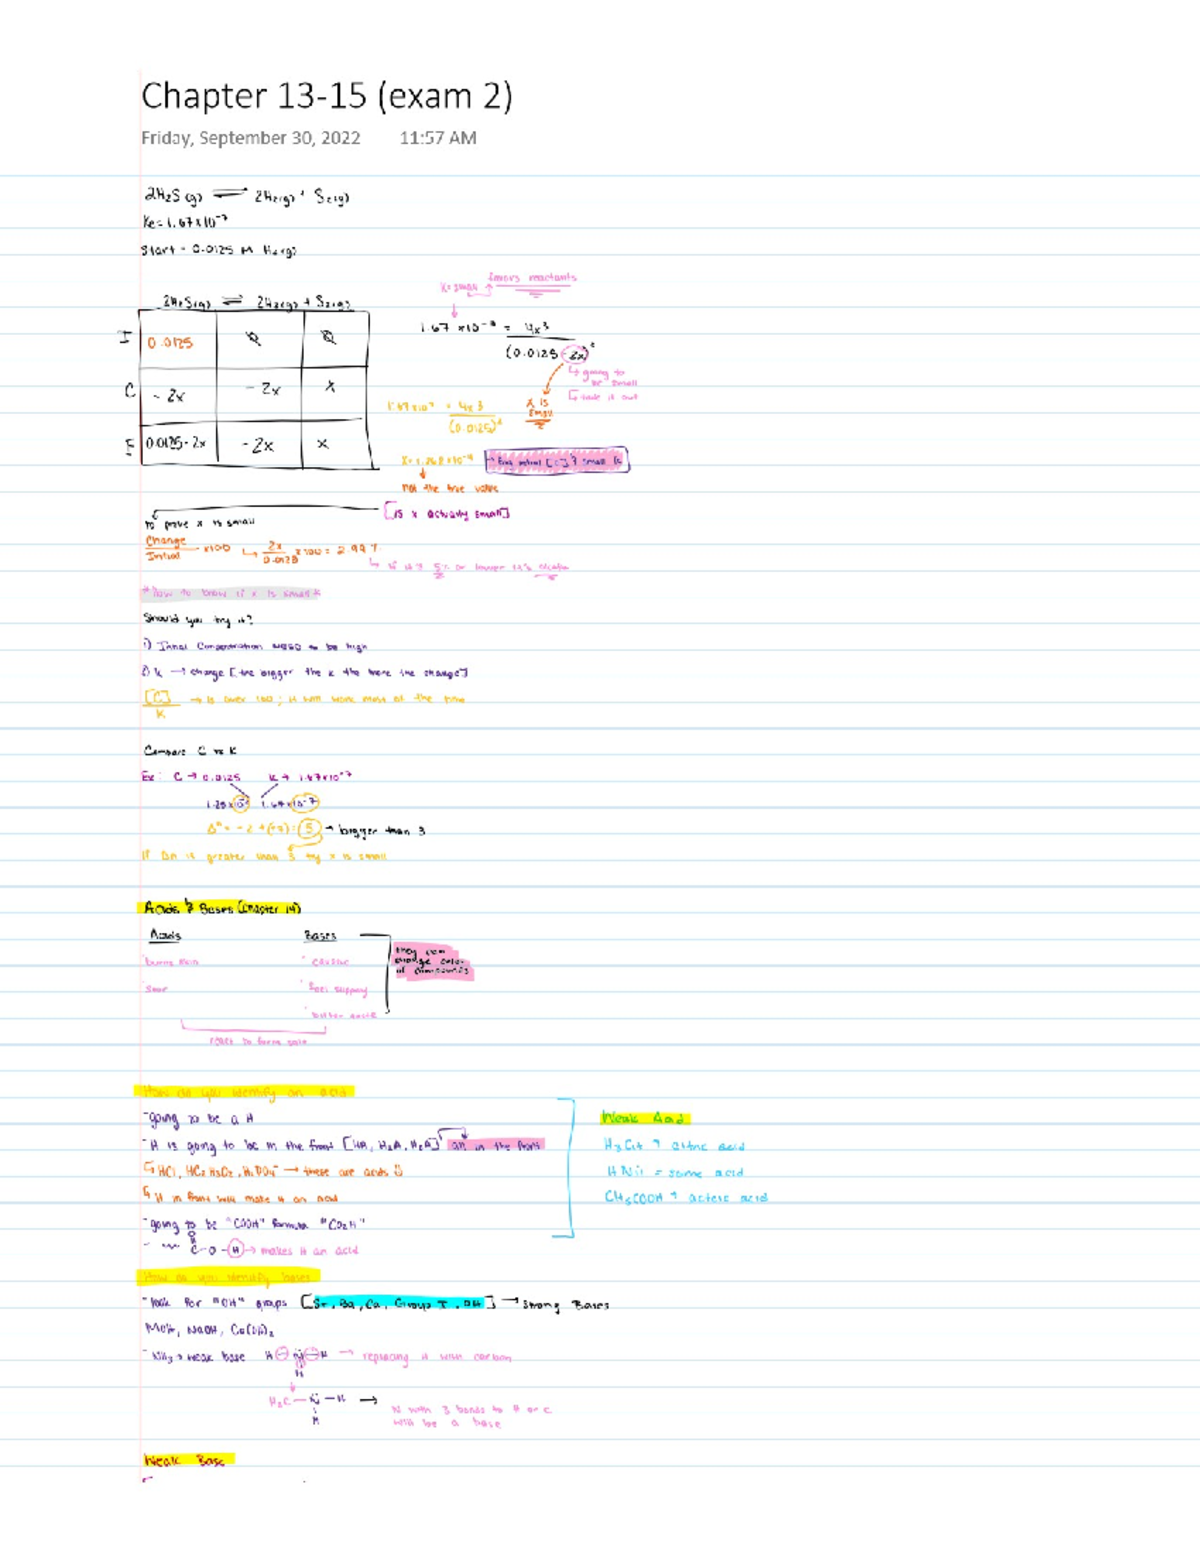 Chapter 13-15 (exam 2)
Friday, September 30, 2022 11:57 AM
2H₂S(g) ⇌ 2H₂(g) + S₂(g)
Kc = 1.67×10⁻⁷
Start = 0.0125 M H₂(g)
favors reactants
K = small
2H₂S(g) ⇌ 2H₂(g) + S₂(g)
I 0.0125 0 0
C - 2x - 2x x
E 0.0125 - 2x - 2x x
1.67 ×10⁻⁷ = 4x³
(0.0125 - 2x)²
going to be small
take it out
x is small
1.67×10⁷ = 4x3
(0.0125)²
not the true value
[is x actually small]
to prove x is small
Change
Initial ×100 → 2x
0.0125 ×100 = 2.99 %
* how to know if x is small *
Should you try it?
1) Initial Concentration need to be high
2) K → change [the bigger the K the more the change]
[C]
K → is over 100; it will work most of the time
Compare C vs K
Ex: C → 0.0125 K → 1.67×10⁻⁷
1.25×10⁻² 1.67×10⁻⁷
Δn = -2 +(+7) = 5 → bigger than 3
If Δn is greater than 3 try x is small
Acids & Bases (Chapter 14)
Acids Bases
burns skin caustic
sour feel slippery
bitter taste
they can change color of compounds
react to form salt
How do you identify an acid
- going to be a H
- H is going to be in the front [HA, H₂A, H₃A] all in the front
HCl, HC₂H₃O₂, H₃PO₄ → these are acids
H in front will make it an acid
- going to be "COOH" formula "CO₂H"
O
C-O-H → makes it an acid
Weak Acid
H₃Cit → citric acid
HNit = some acid
CH₃COOH → acetic acid
How do you identify bases
- look for "OH" groups [Sr, Ba, Ca, Group I, OH] → Strong Bases
MOH, NaOH, Ca(OH)₂
- NH₃ → weak base H N H → replacing H with carbon
H
H₃C — N — H →
H
N with 3 bonds to H or C
will be a base
Weak Base